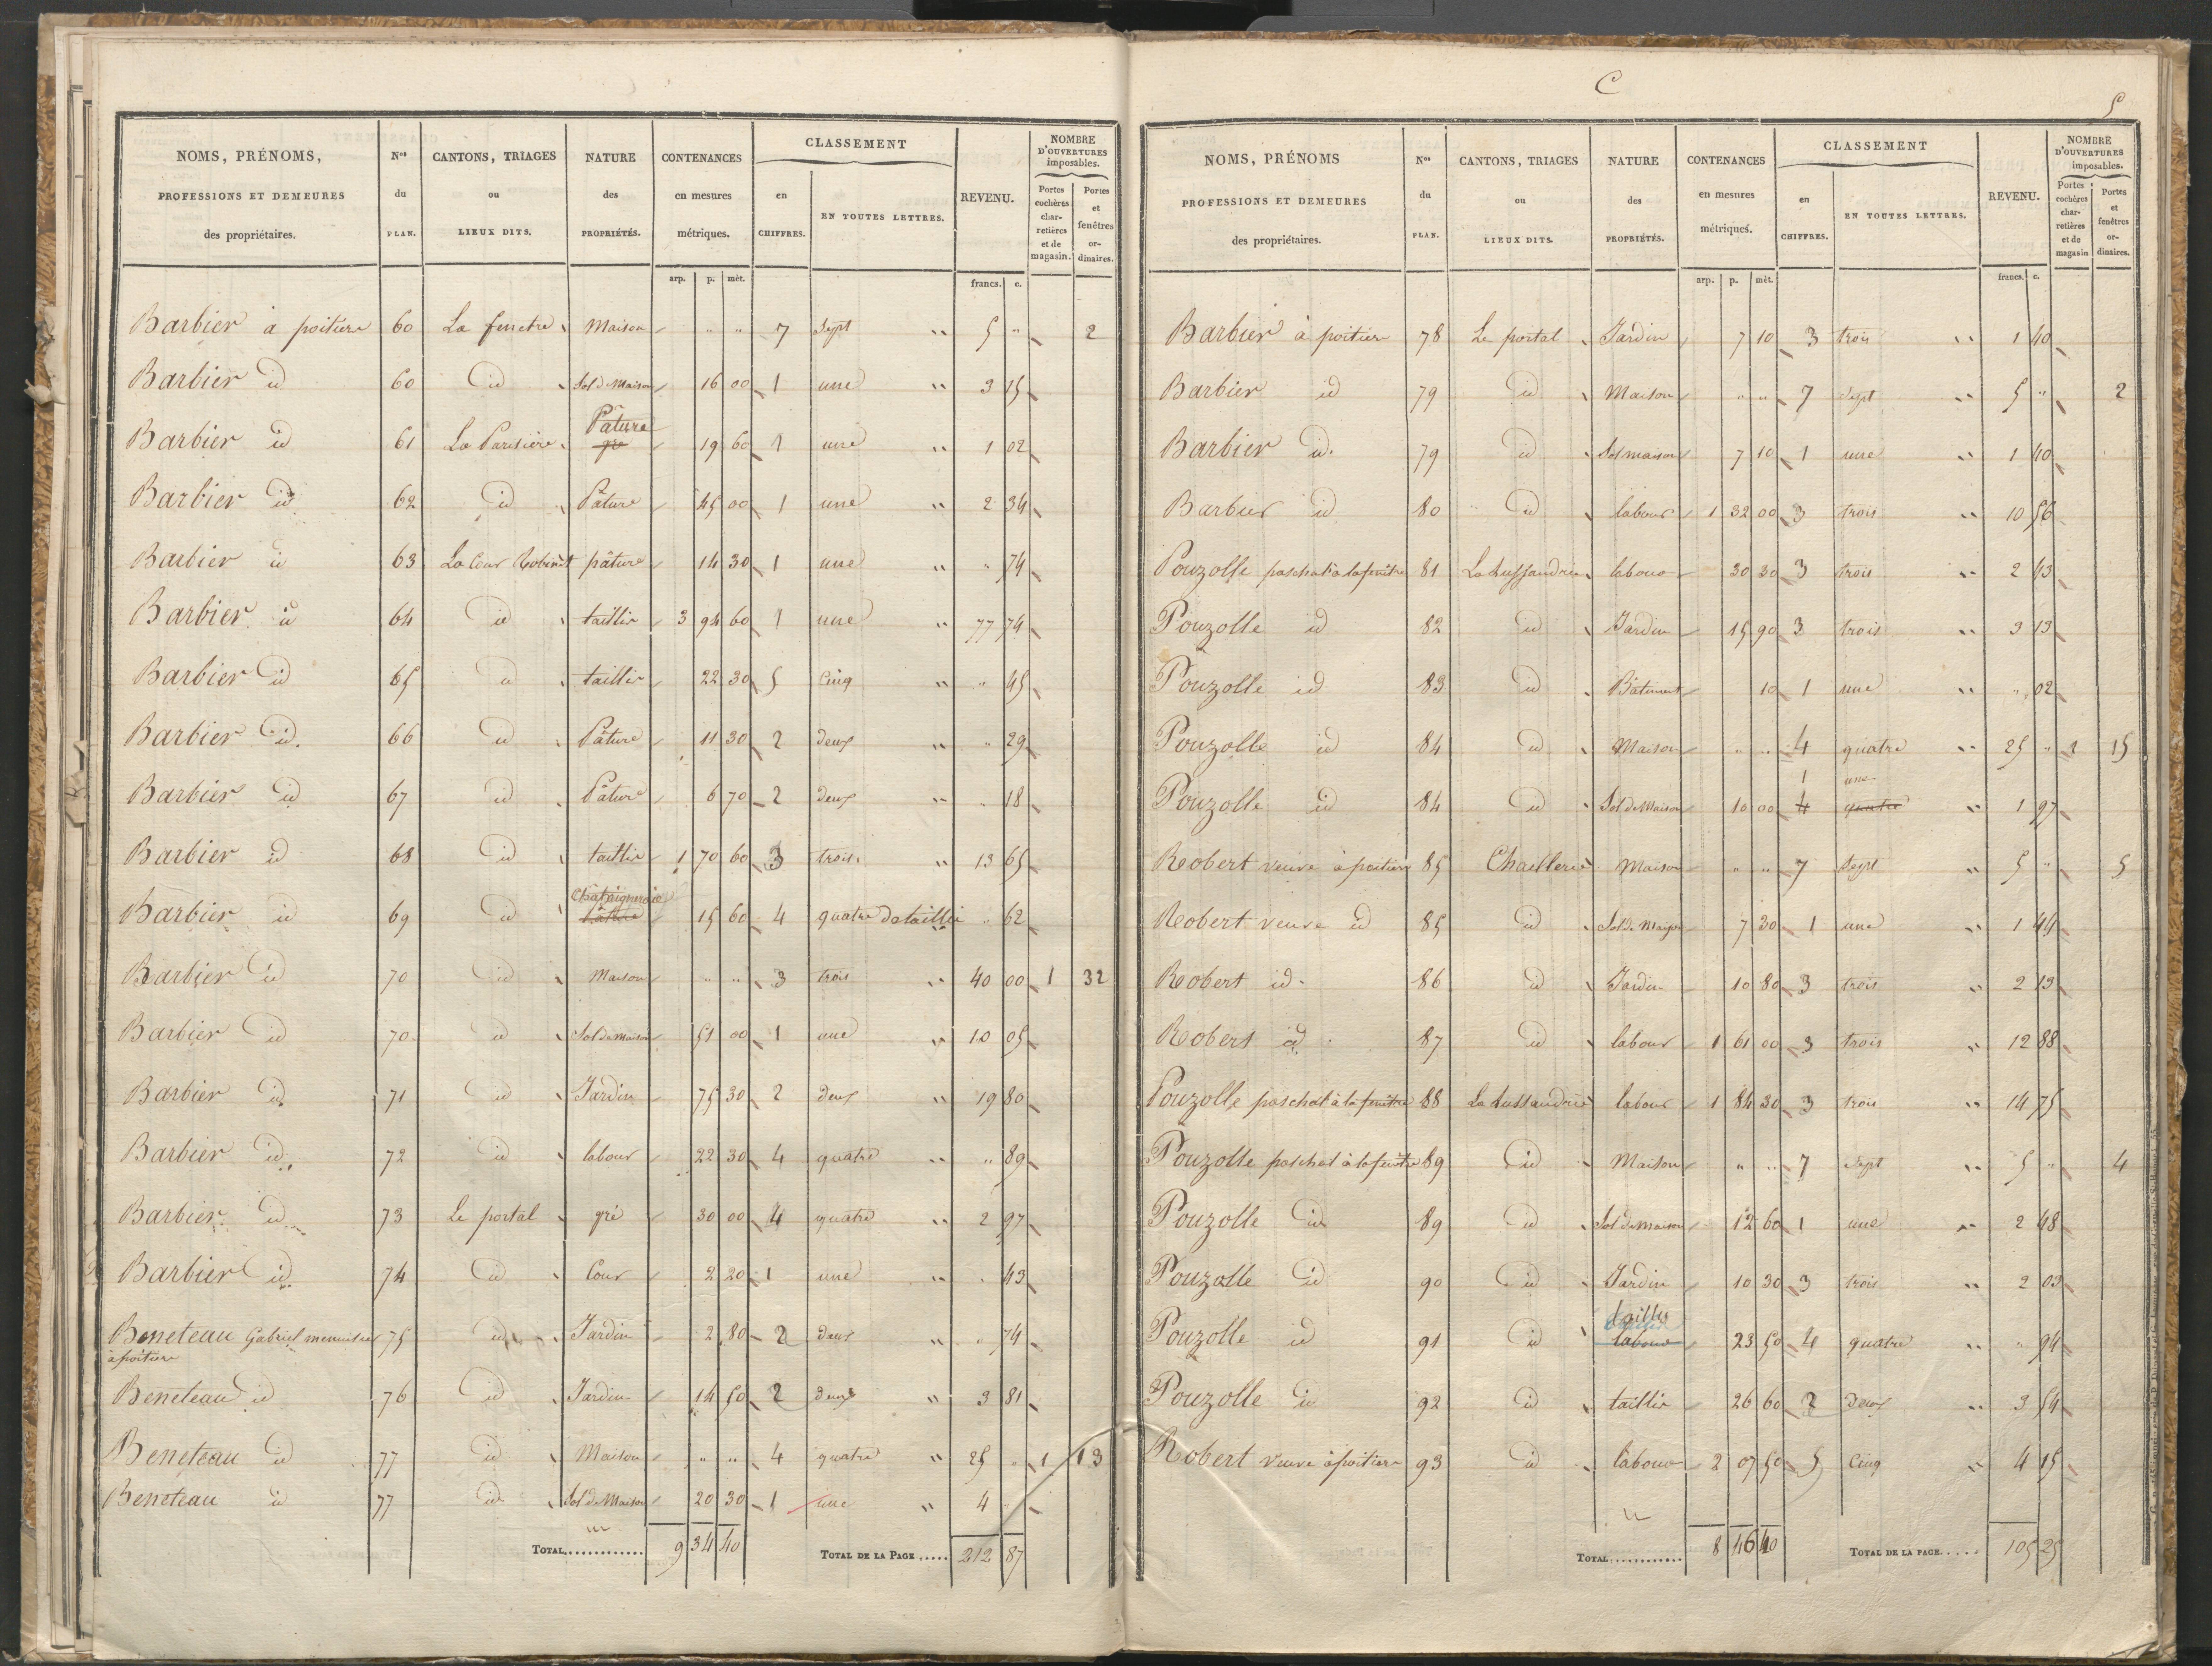 NOMS, PRÉNOMS, PROFESSIONS ET DEMEURES des propriétaires. | Nos du PLAN. | CANTONS, TRIAGES ou LIEUX DITS. | NATURE des PROPRIÉTÉS. | CONTENANCES en mesures métriques. | CLASSEMENT en CHIFFRES. | EN TOUTES LETTRES. | REVENU. | NOMBRE D'OUVERTURES imposables. Portes cochères charretières et de magasin. | Portes et fenêtres ordinaires.
arp. p. mèt. francs. c.
Barbier à poitiers 60 La fenetre Maison " " 7 Sept " 5 " 2
Barbier id 60 id Sol de Maison 16 00 1 une " 3 15
Barbier id 61 La Parisière Pâture 19 60 1 une " 1 02
Barbier id 62 id Pâture 45 00 1 une " 2 34
Barbier id 63 La Cour Robinet pâture 14 30 1 une " " 74
Barbier id 64 id taillis 3 94 60 1 une " 77 74
Barbier id 65 id taillis 22 30 5 Cinq " " 45
Barbier id. 66 id Pâture 11 30 2 deux " " 29
Barbier id 67 id Pâture 6 70 2 deux " " 18
Barbier id 68 id taillis 1 70 60 3 trois " 13 65
Barbier id 69 id Chataigneraie 15 60 4 quatre de taillis " 62
Barbier id 70 id Maison " " 3 trois " 40 00 1 32
Barbier id 70 id Sol de maison 51 00 1 une " 10 05
Barbier id. 71 id Jardin 75 30 2 deux " 19 80
Barbier id. 72 id labour 22 30 4 quatre " " 89
Barbier id 73 Le portal pré 30 00 4 quatre " 2 97
Barbier id. 74 id Cour 2 20 1 une " " 43
Beneteau Gabriel menuisier 75 id Jardin 2 80 2 deux " " 74
à poitiers
Beneteau id 76 id Jardin 14 50 2 deux " 3 81
Beneteau id 77 id Maison " " 4 quatre " 25 " 1 13
Beneteau id 77 id Sol de Maison 20 30 1 une " 4 "
TOTAL............ 9 34 40 TOTAL DE LA PAGE..... 212 87
C
5
NOMS, PRÉNOMS PROFESSIONS ET DEMEURES des propriétaires. | Nos du PLAN. | CANTONS, TRIAGES ou LIEUX DITS. | NATURE des PROPRIÉTÉS. | CONTENANCES en mesures métriques. | CLASSEMENT en CHIFFRES. | EN TOUTES LETTRES. | REVENU. | NOMBRE D'OUVERTURES imposables. Portes cochères charretières et de magasin | Portes et fenêtres ordinaires.
arp. p. mèt. francs. c.
Barbier à poitiers 78 Le portal Jardin 7 10 3 trois " 1 40
Barbier id 79 id Maison " " 7 Sept " 5 " 2
Barbier id. 79 id Sol maison 7 10 1 une " 1 40
Barbier id 80 id labour 1 32 00 3 trois " 10 56
Pouzolle paschal à la fenêtre 81 La hussaudrie labour 30 30 3 trois " 2 43
Pouzolle id 82 id Jardin 15 90 3 trois " 3 13
Pouzolle id 83 id Bâtiment 10 1 une " " 02
Pouzolle id 84 id Maison " " 4 quatre " 25 " 1 15
Pouzolle id 84 id Sol de Maison 10 00 1 une " 1 97
Robert veuve à poitiers 85 Chaellerie Maison " " 7 Sept " 5 " 5
Robert veuve id 85 id Sol de Maison 7 30 1 une " 1 44
Robert id. 86 id Jardin 10 80 3 trois " 2 13
Robert id 87 id labour 1 61 00 3 trois " 12 88
Pouzolle paschal à la fenêtre 88 La hussaudrie labour 1 84 30 3 trois " 14 75
Pouzolle paschal à la fenêtre 89 id Maison " " 7 Sept " 5 " 4
Pouzolle id 89 id Sol de maison 12 60 1 une " 2 48
Pouzolle id 90 id Jardin 10 30 3 trois " 2 03
Pouzolle id 91 id taillis 23 50 4 quatre " " 94
Pouzolle id 92 id taillis 26 60 2 deux " 3 54
Robert veuve à poitiers 93 id labour 2 07 50 5 Cinq " 4 15
TOTAL............ 8 46 40 TOTAL DE LA PAGE..... 105 25